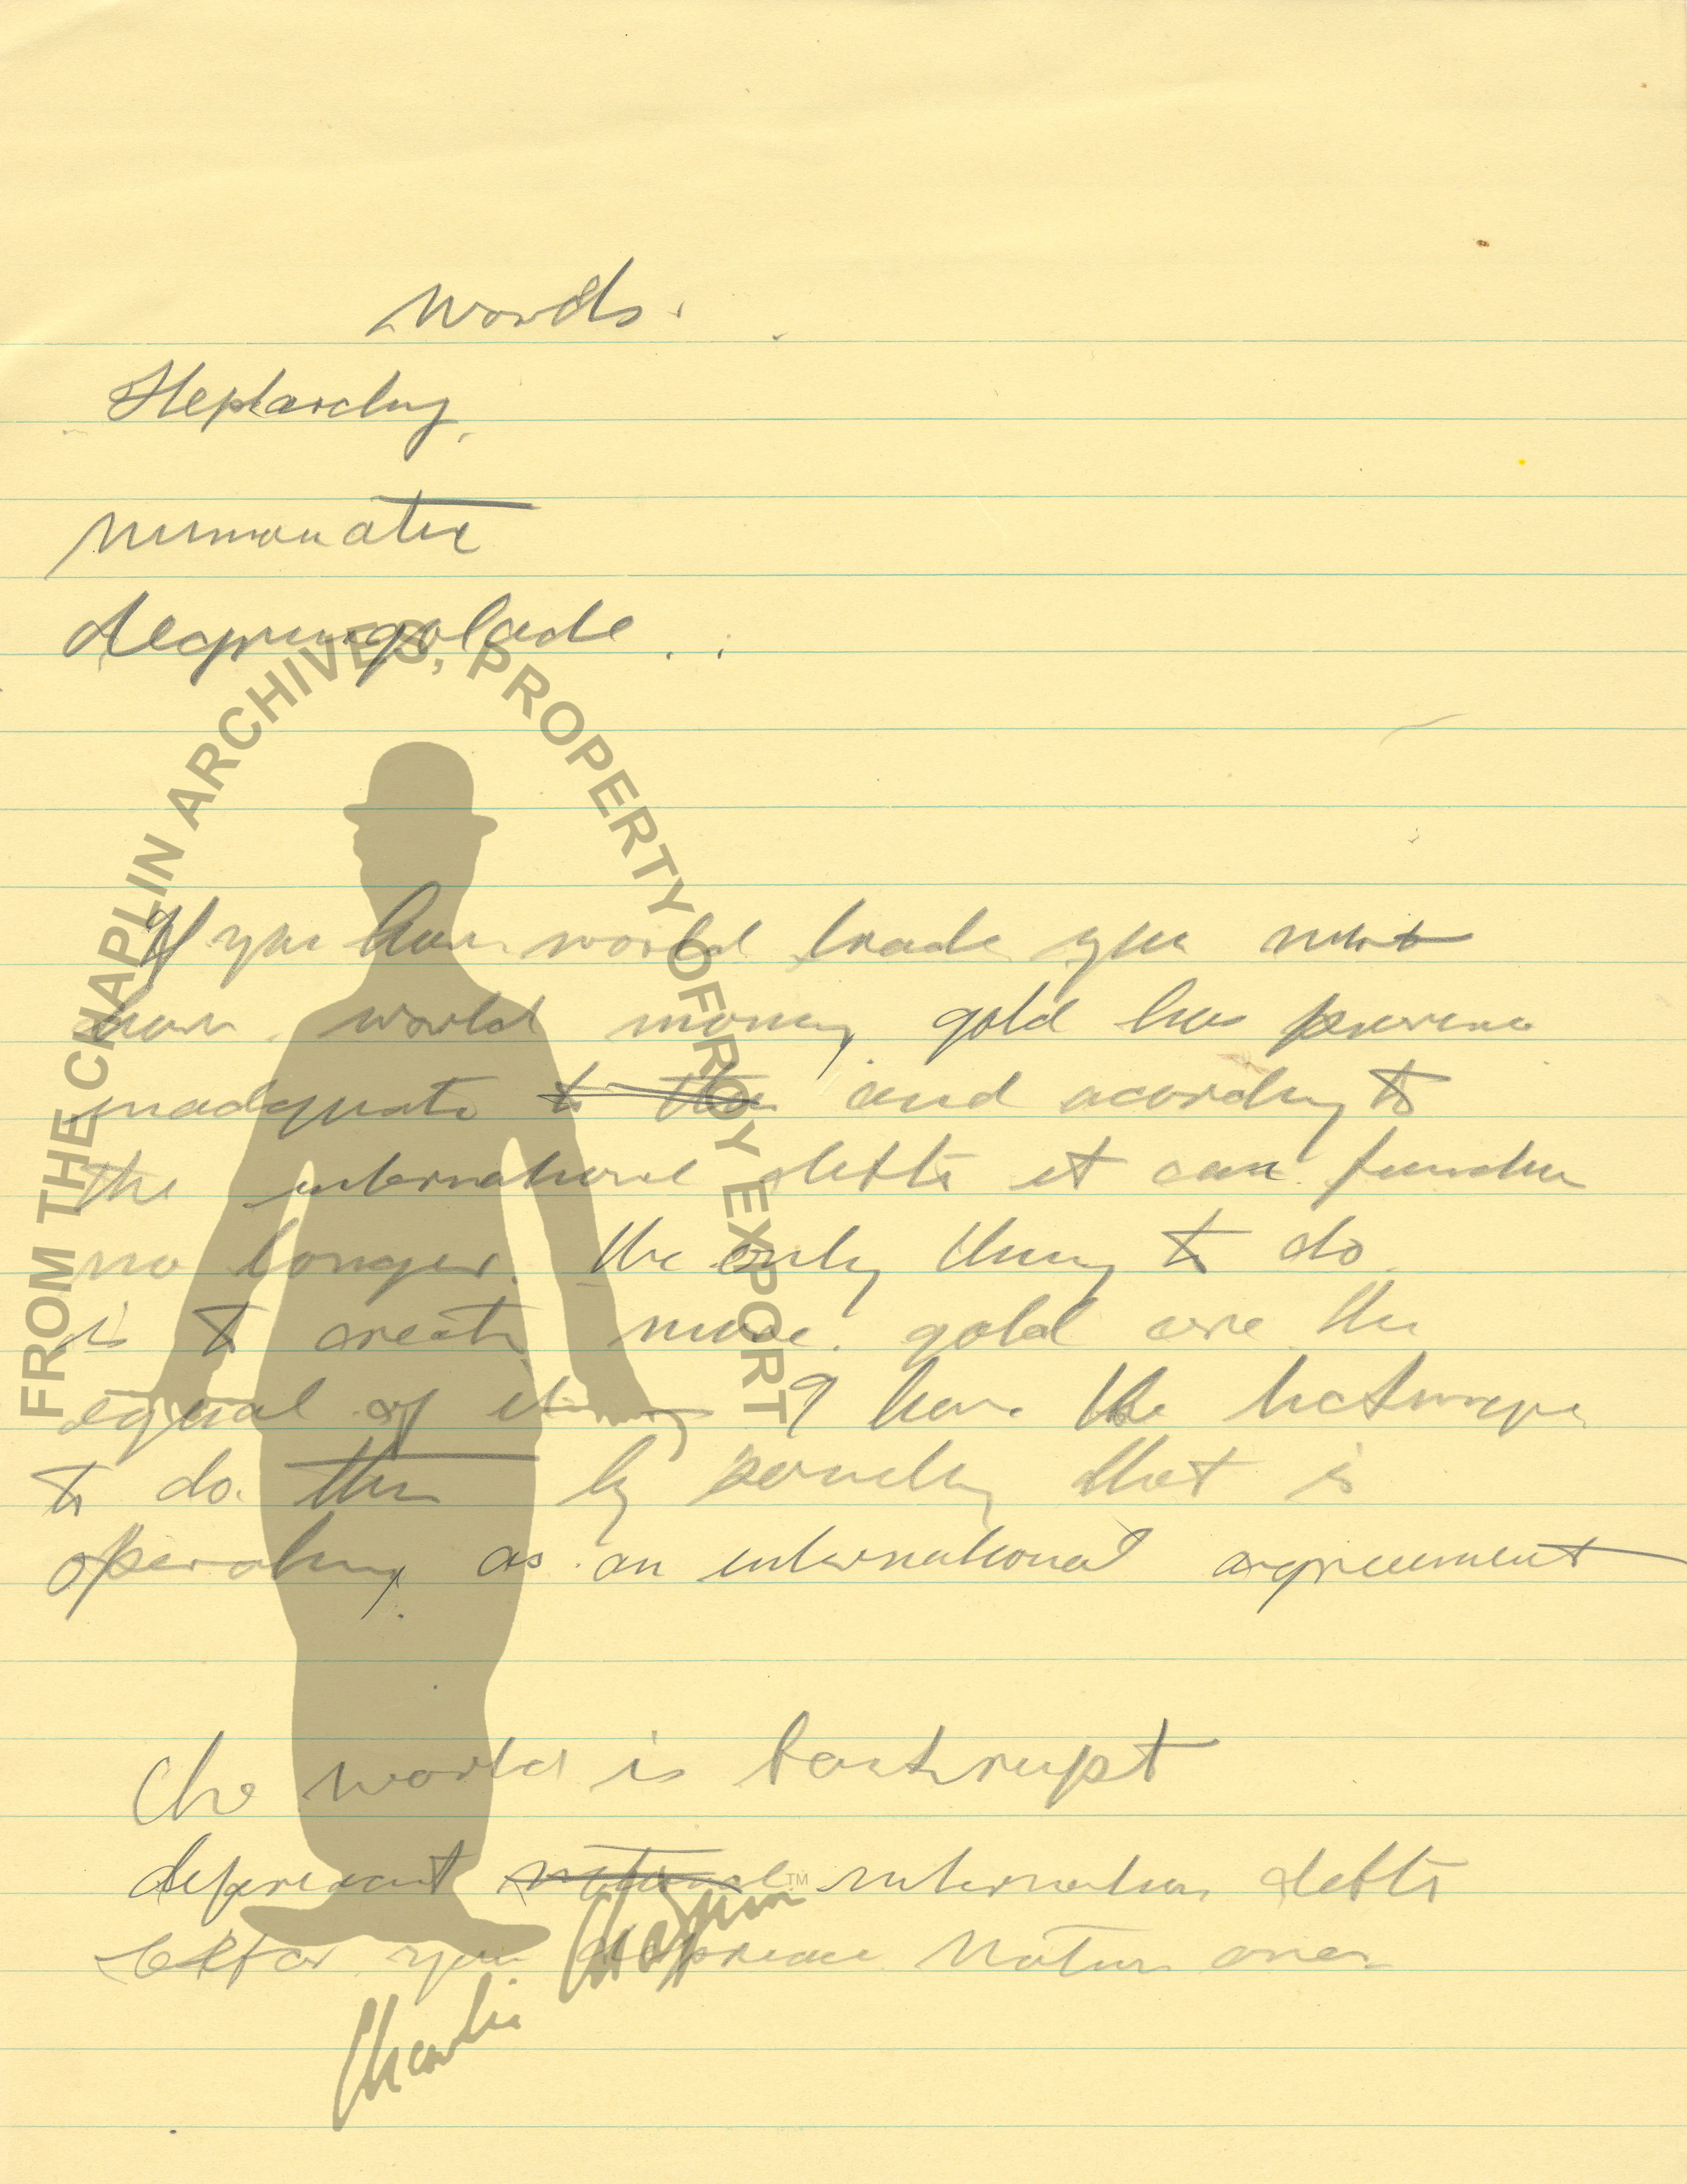 Words.
Heptarchy,
decpringolade
If you have world trade you must
have world money, gold has proven
inadquate to the and acording to
the international debts it can function
no longer. the only thing to do
is to create more gold are the
equal of it — I have the
to do this by that is
operating as an international agreement
The world is bankrupt
depreciant national internation debts
befor you depreciate nation ones
FROM THE CHAPLIN ARCHIVES, PROPERTY OF ROY EXPORT
Charlie Chaplin ™